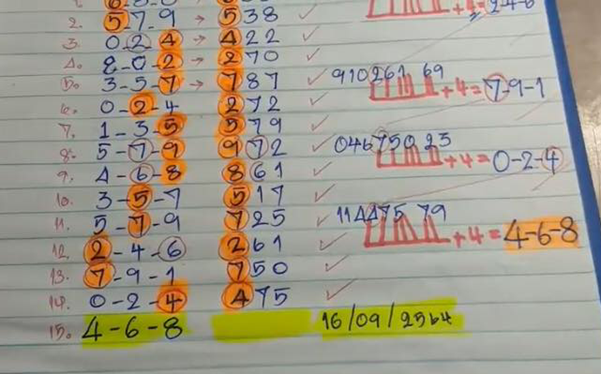 2. 5-7-9 → 538 +4=2-4-6
3. 0-2-4 → 422
4. 8-0-2 → 270
5. 3-5-7 → 787 ✓ 910261 69 +4=7-9-1
6. 0-2-4 272 ✓
7. 1-3-5 579 ✓
8. 5-7-9 972 ✓ 04675023 +4=0-2-4
9. 4-6-8 861 ✓
10. 3-5-7 517 ✓
11. 5-7-9 725 ✓ 114475 79 +4=4-6-8
12. 2-4-6 261 ✓
13. 7-9-1 750 ✓
14. 0-2-4 475 ✓
15. 4-6-8 16/09/2564